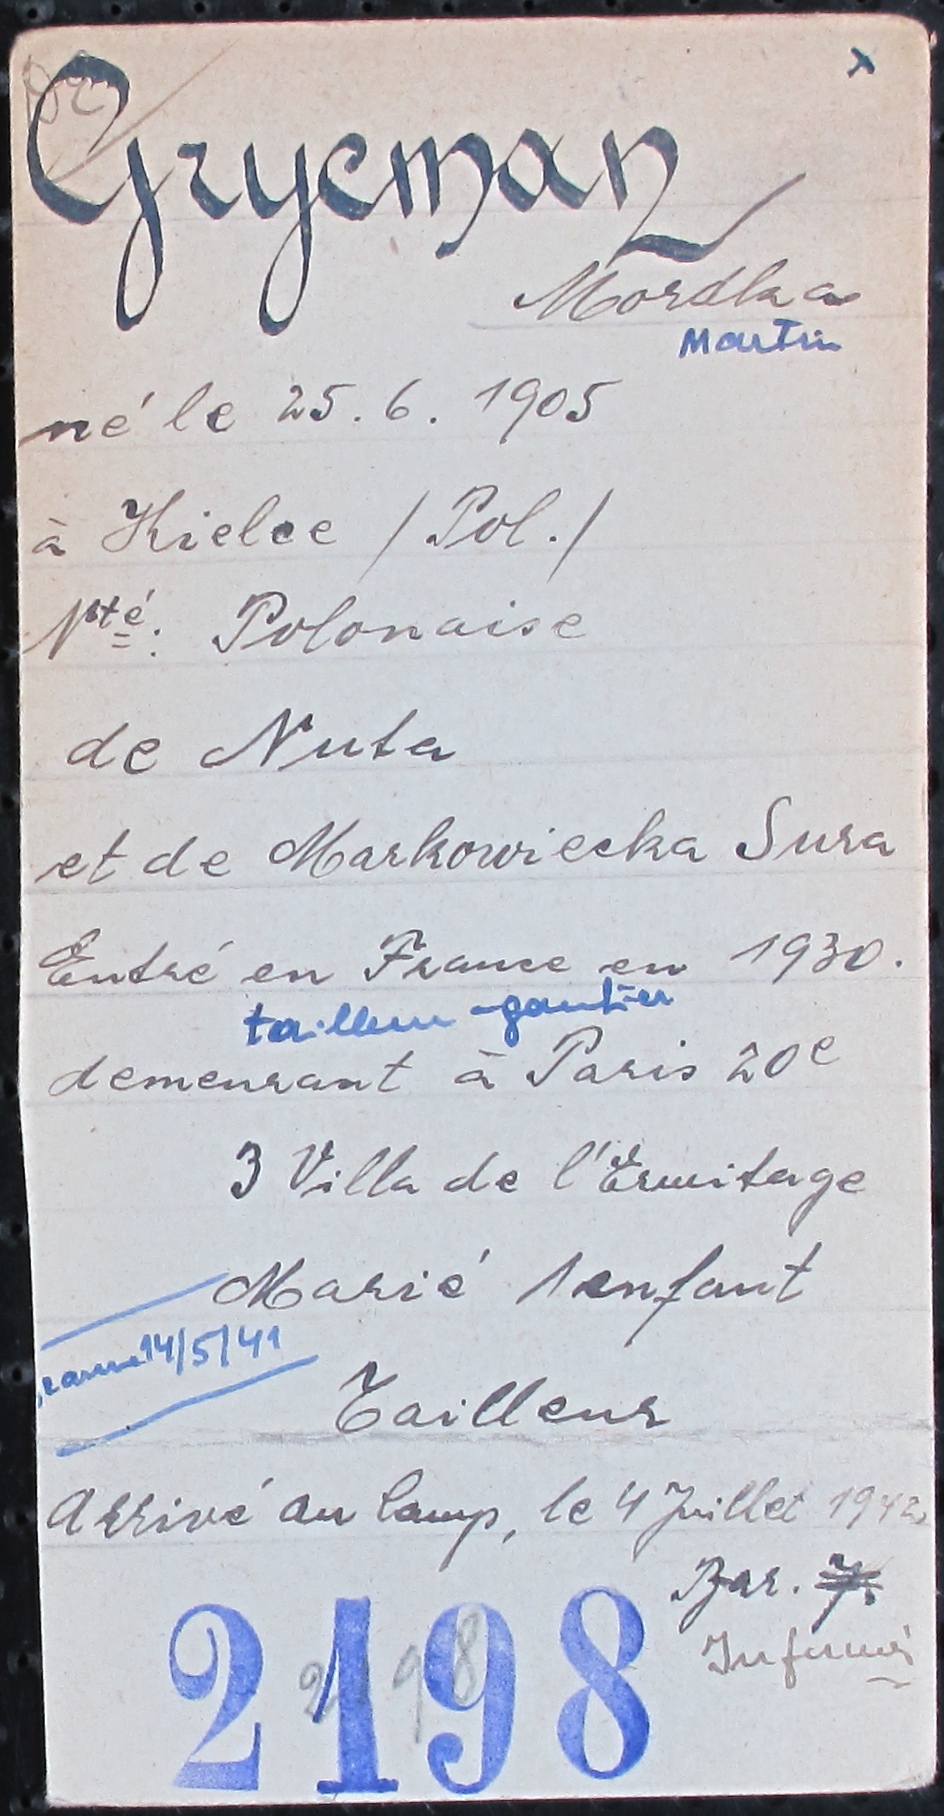 x
Grycman
Mordka
Martin
né le 25.6.1905
à Kielce /Pol./
Nté: Polonaise
de Nuta
et de Markowiecka Sura
Entré en France en 1930.
tailleur-gantier
demeurant à Paris 20e
3 Villa de l'Ermitage
Marié 1 enfant
14/5/41
Tailleur
Arrivé au Camp, le 4 Juillet 1942.
Bar. 7.
2198
2198